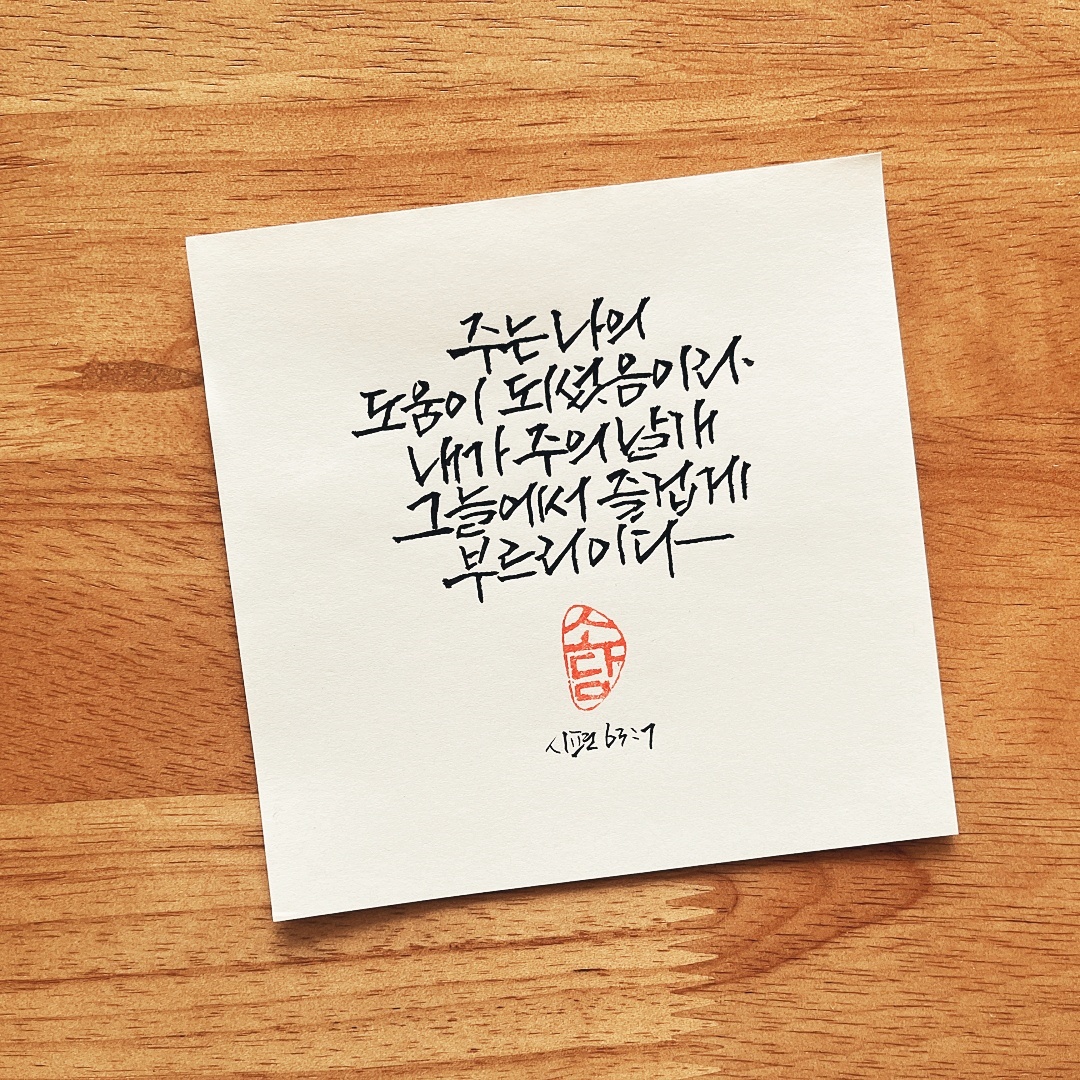 주는 나의
도움이 되셨음이라
내가 주의 날개
그늘에서 즐겁게
부르리이다
소담
시편 63:7